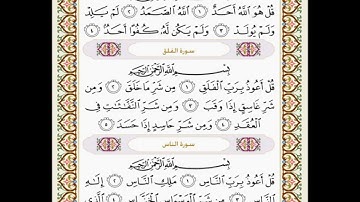 قُلْ هُوَ ٱللَّهُ أَحَدٌ ١ ٱللَّهُ ٱلصَّمَدُ ٢ لَمْ يَلِدْ
وَلَمْ يُولَدْ ٣ وَلَمْ يَكُن لَّهُۥ كُفُوًا أَحَدٌۢ ٤
سورة الفلق
بِسْمِ ٱللَّهِ ٱلرَّحْمَٰنِ ٱلرَّحِيمِ
قُلْ أَعُوذُ بِرَبِّ ٱلْفَلَقِ ١ مِن شَرِّ مَا خَلَقَ ٢ وَمِن
شَرِّ غَاسِقٍ إِذَا وَقَبَ ٣ وَمِن شَرِّ ٱلنَّفَّٰثَٰتِ فِى
ٱلْعُقَدِ ٤ وَمِن شَرِّ حَاسِدٍ إِذَا حَسَدَ ٥
سورة الناس
بِسْمِ ٱللَّهِ ٱلرَّحْمَٰنِ ٱلرَّحِيمِ
قُلْ أَعُوذُ بِرَبِّ ٱلنَّاسِ ١ مَلِكِ ٱلنَّاسِ ٢ إِلَٰهِ
ٱلنَّاسِ ٣ مِن شَرِّ ٱلْوَسْوَاسِ ٱلْخَنَّاسِ ٤ ٱلَّذِى